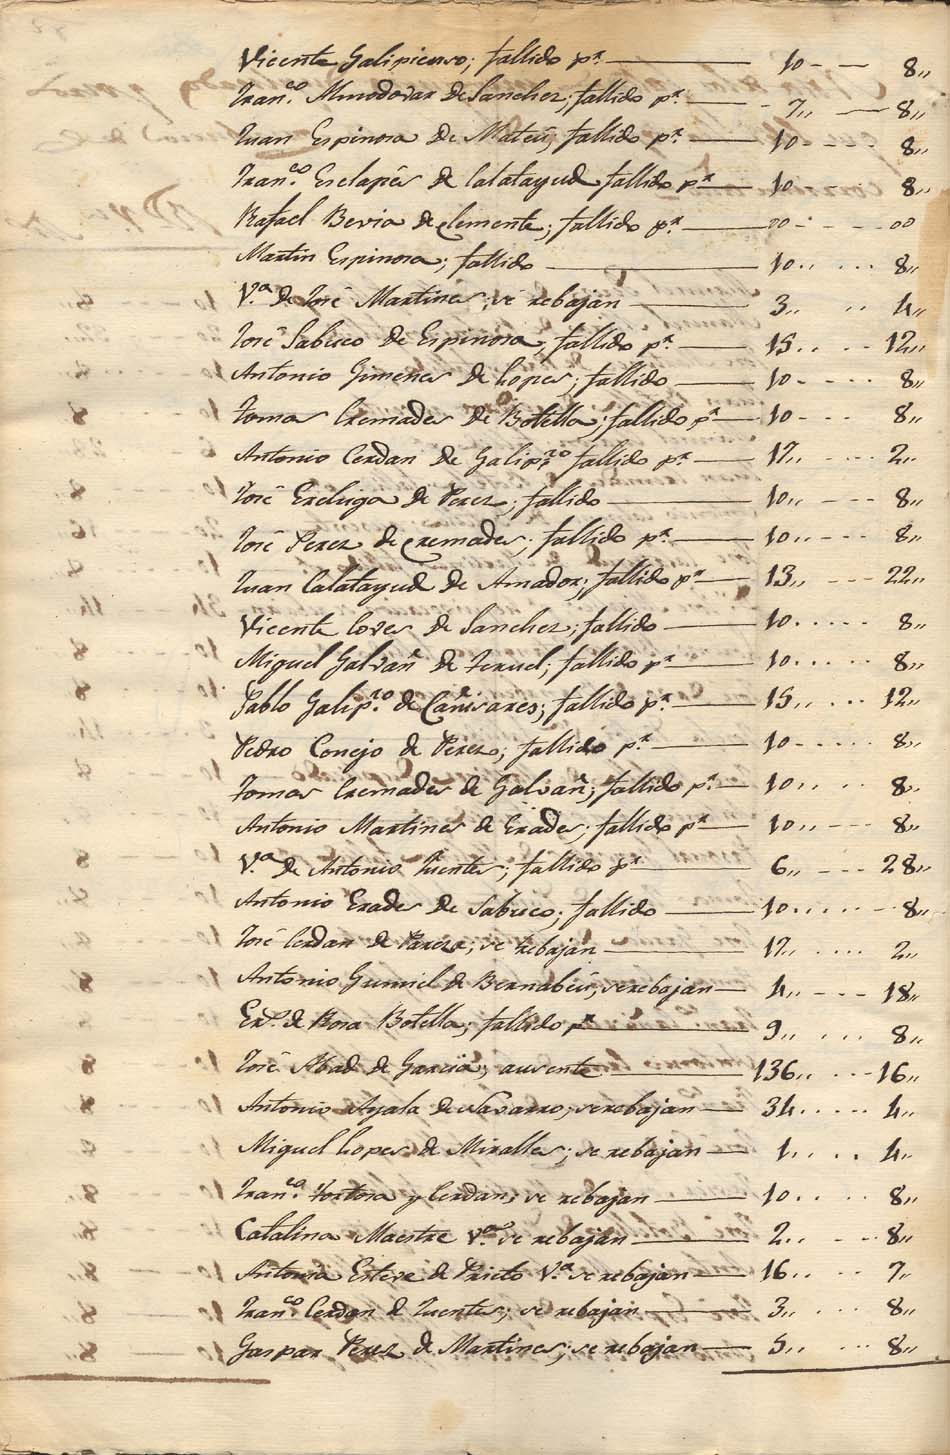 Vicente Galipienso; fallido pr. 10 8,,
Franco. Almodovar de Sanchez; fallido pr. 7,, 8,,
Juan Espinosa de Mateù; fallido pr. 10 8,,
Franco. Esclapès de Calatayud fallido pr. 10 8,,
Rafael Bevia de Clemente; fallido pr. 00 00
Martin Espinosa; fallido 10,, 8,,
Va. de Josè Martines; se rebajan 3,, 4,,
Josè Sabuco de Espinosa, fallido pr. 15,, 12,,
Antonio Gimenes de Lopes; fallido 10 8,,
Tomas Cremades de Botella; fallido pr. 10 8,,
Antonio Cerdan de Galipro. fallido pr. 17,, 2,,
Josè Ereluga de Perez; fallido 10,, 8,,
Josè Perez de Cremades; fallido pr. 10,, 8,,
Juan Calatayud de Amador; fallido pr. 13,, 22,,
Vicente Loves de Sanchez; fallido 10 8,,
Miguel Galvañ de Teruel; fallido pr. 10 8,,
Pablo Galipro. de Cañisares; fallido pr. 15,, 12,,
Pedro Conejo de Perez; fallido pr. 10 8,,
Tomas Cremades de Galvañ; fallido pr. 10,, 8,,
Antonio Martines de Erades; fallido pr. 10,, 8,,
Va. de Antonio Fuentes; fallido pr. 6,, 28,,
Antonio Erades de Sabuco; fallido 10 8,,
Josè Cerdan de Pareza; se rebajan 17,, 2,,
Antonio Gumiel de Bernabèu; se rebajan 4,, 18,,
de Rosa Botella; fallido pr. 9,, 8,,
Josè Abad de Garcia; ausente 136,, 16,,
Antonio Ayala de Navarro; se rebajan 34 4,,
Miguel Lopes de Miralles; se rebajan 1,, 4,,
Franca. Tortosa y Cerdan; se rebajan 10,, 8,,
Catalina Maestre Va. se rebajan 2,, 8,,
Antonia Esteve de Prieto Va. se rebajan 16,, 7,,
Franco. Cerdan de Fuentes; se rebajan 3,, 8,,
Gaspar Perez de Martines; se rebajan 5,, 8,,